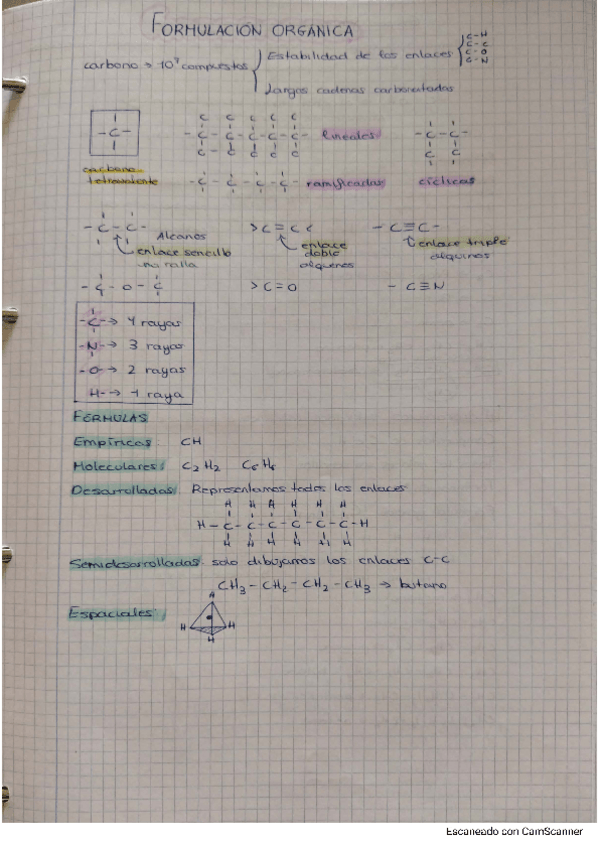 FORMULACIÓN ORGÁNICA
carbono → 10⁷ compuestos { Estabilidad de los enlaces { C-H C-C C-O C-N
Largas cadenas carbonatadas
C C C C C
-C- -C-C-C-C-C- lineales -C-C-
C C C C C C C
carbono
tetravalente -C-C-C-C- ramificadas cíclicas
-C-C- Alcanos >C=C< -C≡C-
enlace sencillo enlace enlace triple
una raya doble alquinos
alquenos
-C-O-C- >C=O -C≡N
-C-→ 4 rayas
-N-→ 3 rayas
-O-→ 2 rayas
H-→ 1 raya
FÓRMULAS
Empíricas: CH
Moleculares: C₂H₂ C₆H₆
Desarrolladas: Representamos todos los enlaces
H H H H H H
H-C-C-C-C-C-C-H
H H H H H H
Semidesarrolladas: solo dibujamos los enlaces C-C
CH₃-CH₂-CH₂-CH₃ → butano
H
Espaciales:
H H
H
Escaneado con CamScanner